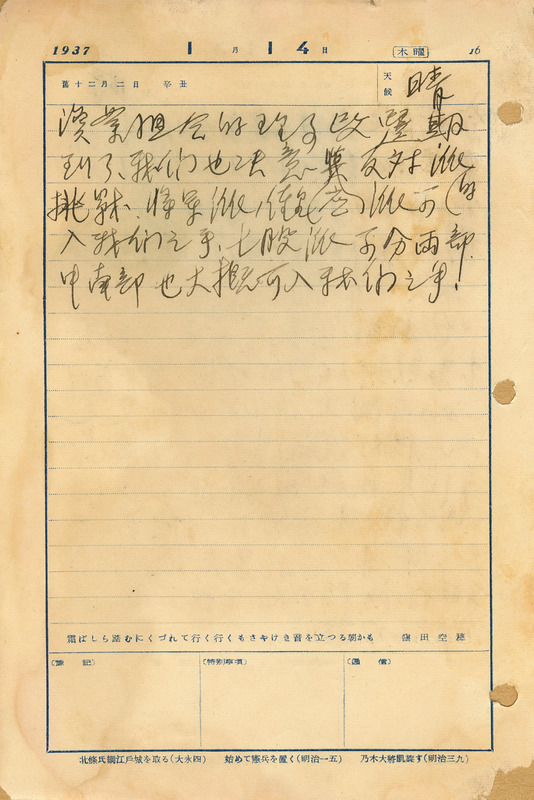 1937 1月14日 木曜 16
舊十二月二日 辛丑 天候 晴
漁業組合的理事改選期
到了、我們也決意與反対派
挑戦、将軍派、派可
入我們之手、七股派可分両部、
中南部也大概可入我們之手!
霜ばしら踏むにくづれて行く行くもさやけき音を立つる朝かも 窪田空穂
(雜記) (特別事項) (通信)
北條氏綱江戸城を取る(大永四) 始めて憲兵を置く(明治一五) 乃木大將凱旋す(明治三九)